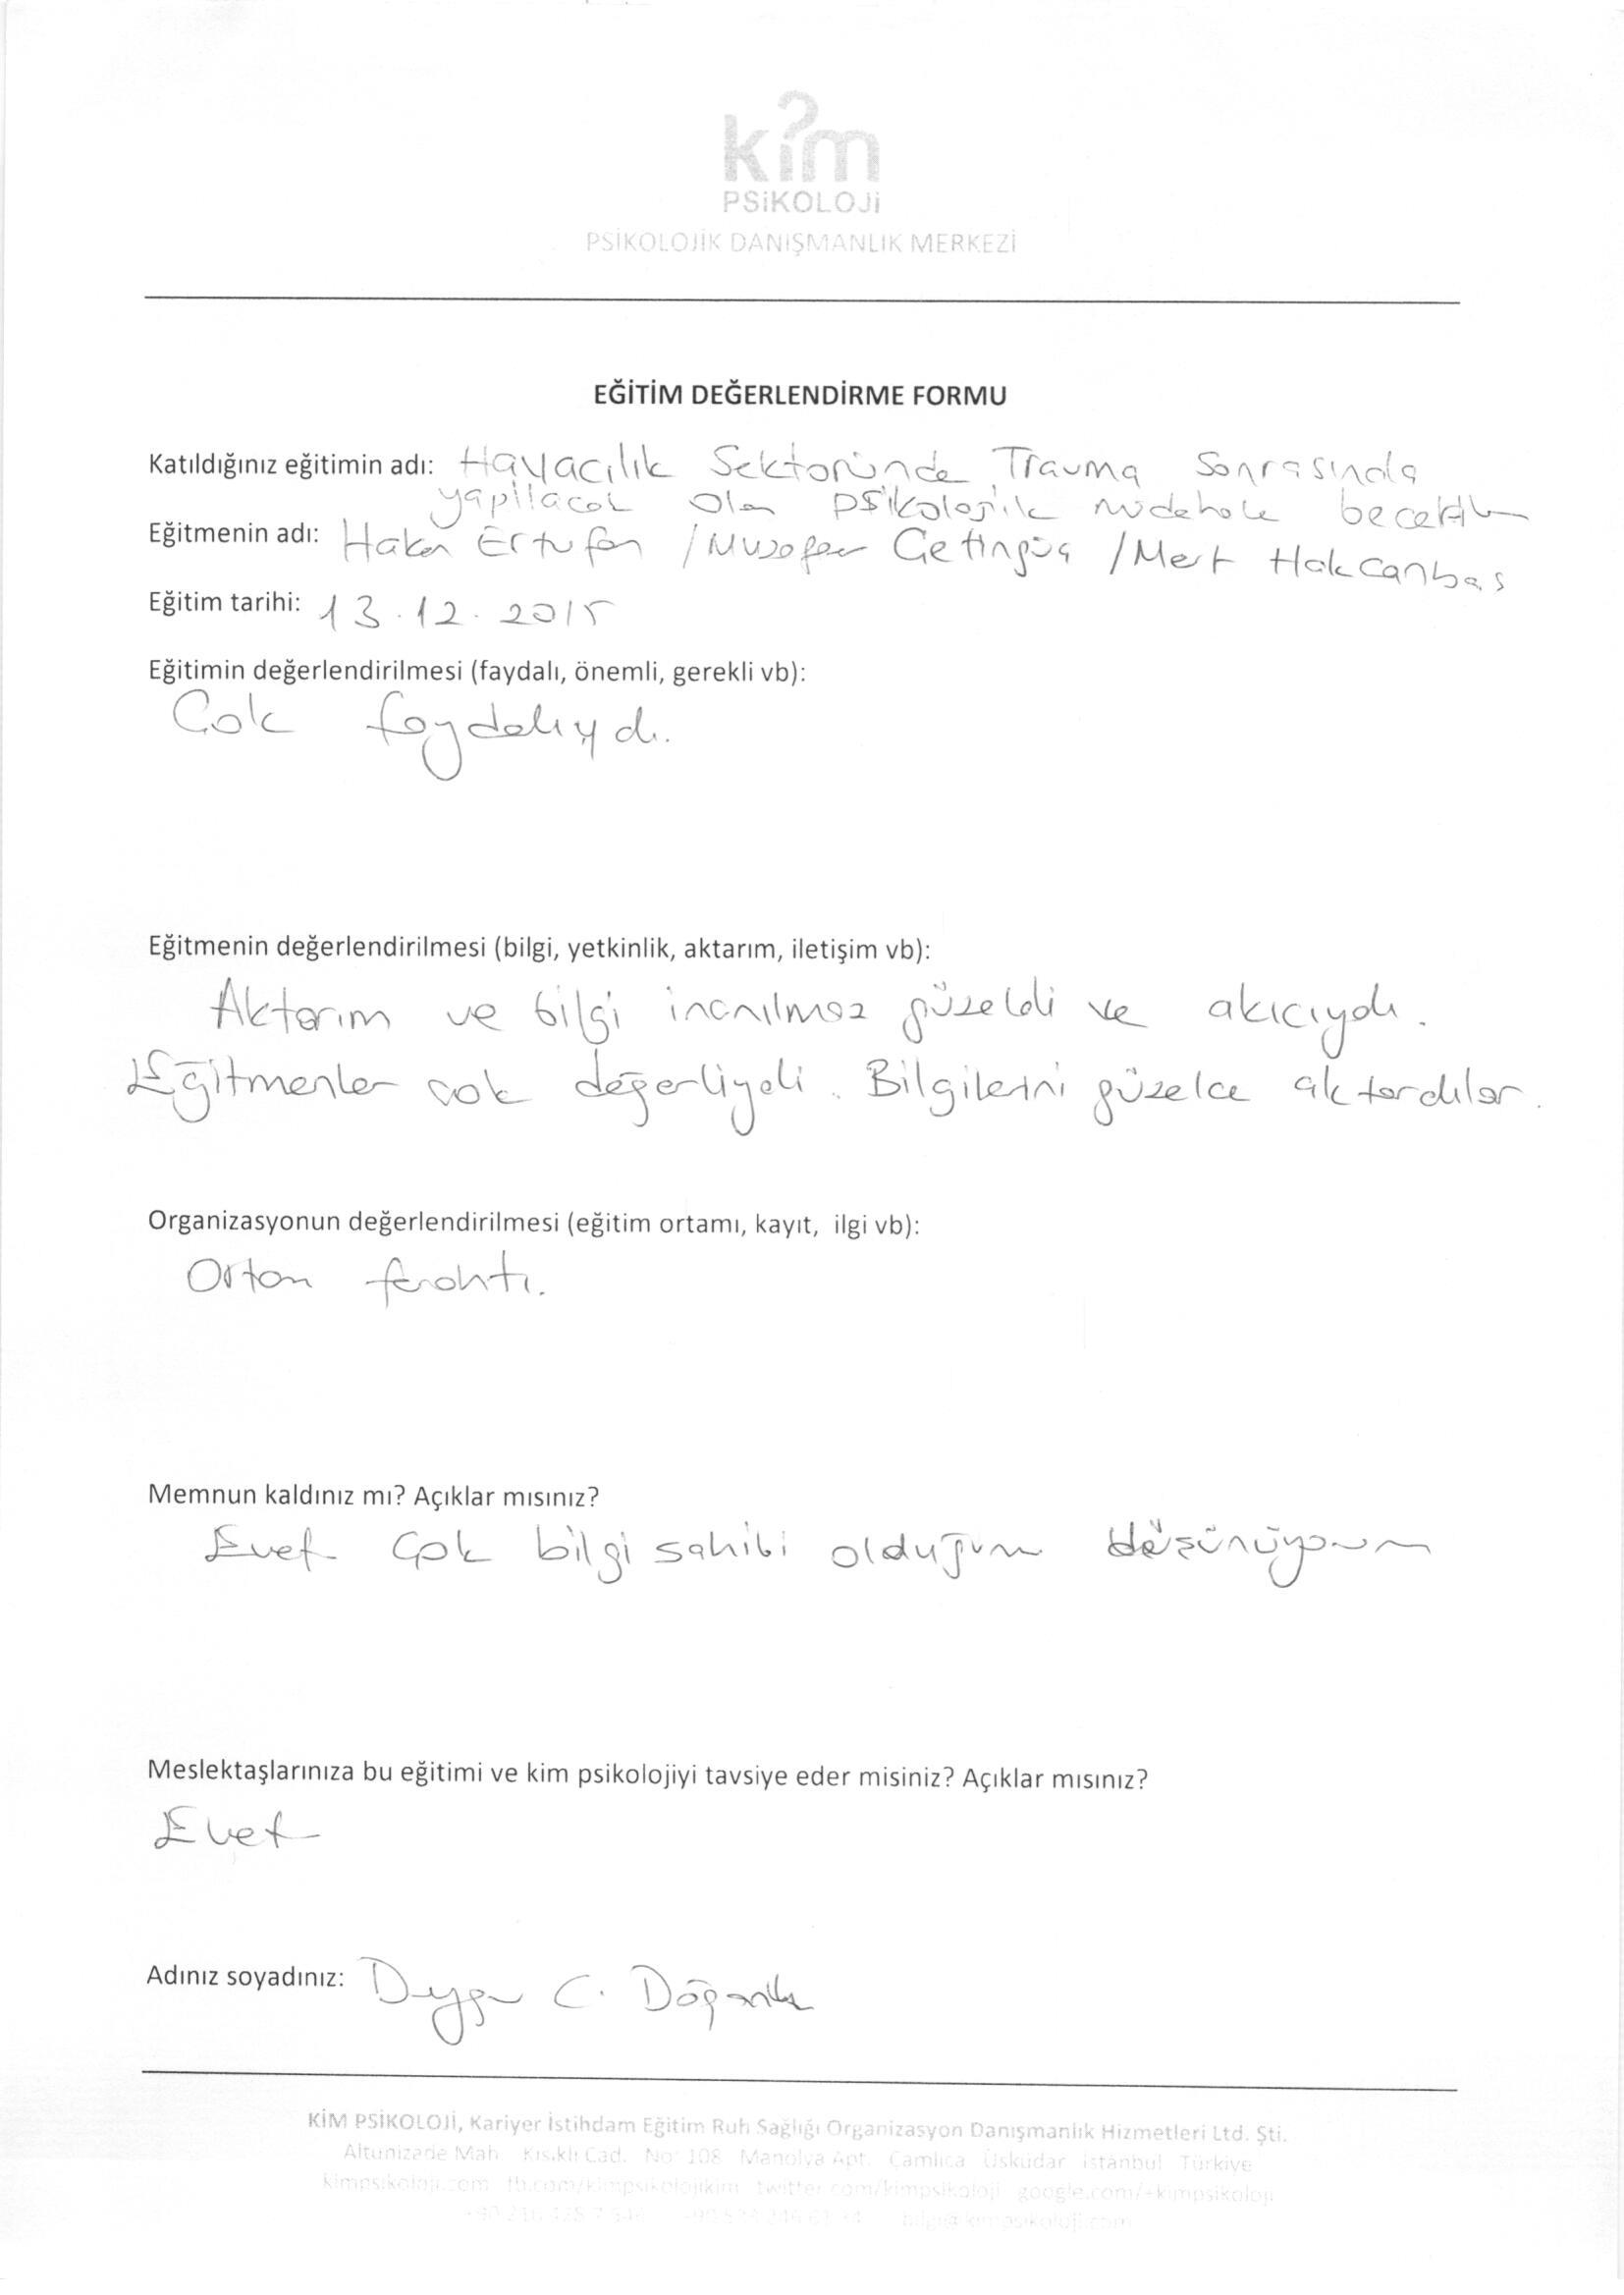 kim
PSİKOLOJİ
PSİKOLOJİK DANIŞMANLIK MERKEZİ
EĞİTİM DEĞERLENDİRME FORMU
Katıldığınız eğitimin adı: Havacılık Sektöründe Travma Sonrasında
yapılacak olan psikolojik müdehale
Eğitmenin adı: Hakan Ertufan / Muzaffer Çetingüç / Mert Hakcanbas
Eğitim tarihi: 13.12.2015
Eğitimin değerlendirilmesi (faydalı, önemli, gerekli vb):
Çok faydalıydı.
Eğitmenin değerlendirilmesi (bilgi, yetkinlik, aktarım, iletişim vb):
Aktarım ve bilgi inanılmaz güzeldi ve akıcıydı.
Eğitmenler çok değerliydi. Bilgilerini güzelce aktardılar.
Organizasyonun değerlendirilmesi (eğitim ortamı, kayıt, ilgi vb):
Ortam ferahtı.
Memnun kaldınız mı? Açıklar mısınız?
Evet çok bilgi sahibi olduğumu düşünüyorum
Meslektaşlarınıza bu eğitimi ve kim psikolojiyi tavsiye eder misiniz? Açıklar mısınız?
Evet
Adınız soyadınız: Duygu C.
KİM PSİKOLOJİ, Kariyer İstihdam Eğitim Ruh Sağlığı Organizasyon Danışmanlık Hizmetleri Ltd. Şti.
Altunizade Mah. Kısıklı Cad. No: 108 Manolya Apt. Çamlıca Üsküdar İstanbul Türkiye
kimpsikoloji.com fb.com/kimpsikolojikim twitter.com/kimpsikoloji google.com/+kimpsikoloji
bilgi@kimpsikoloji.com